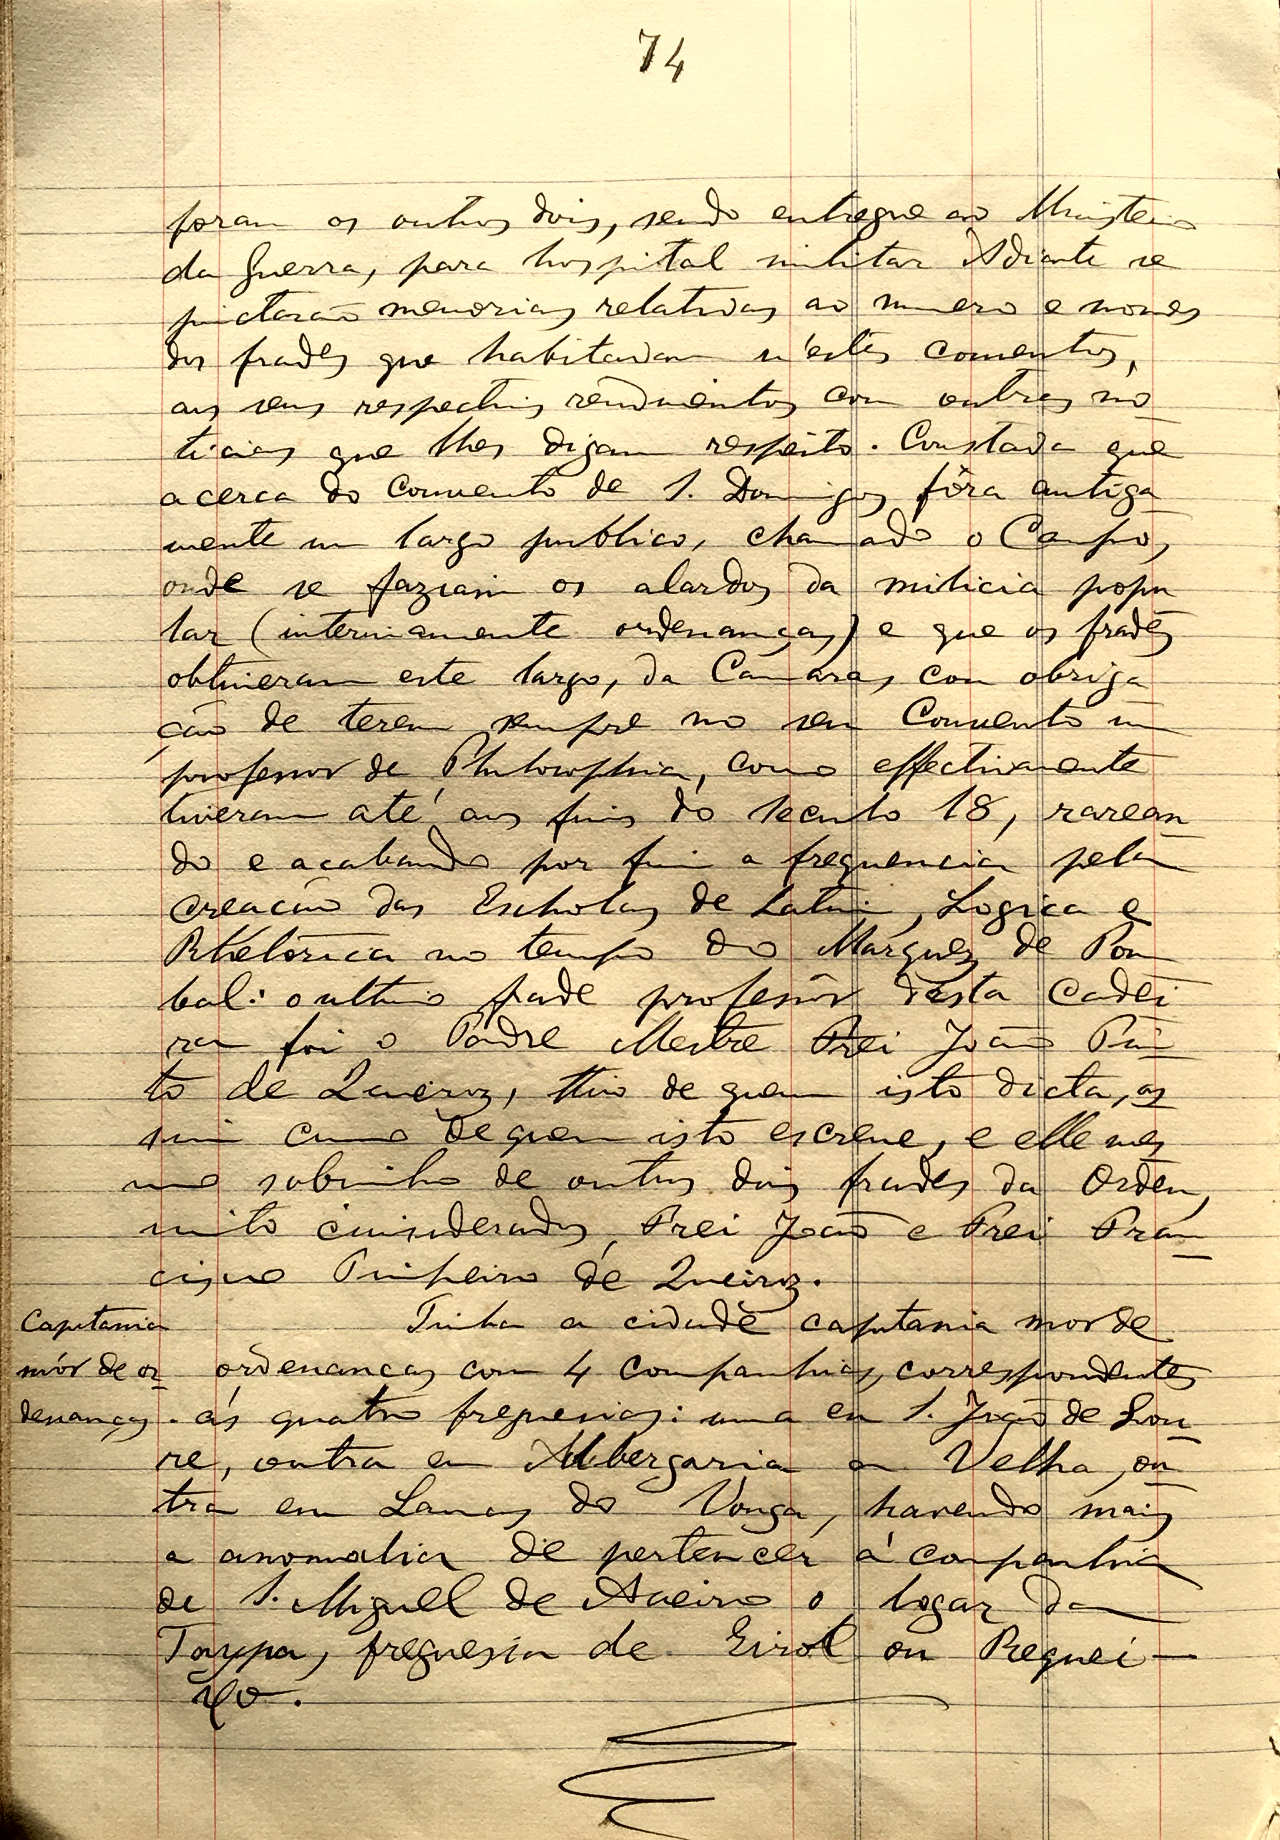 74
foram os outros dois, sendo entregue ao Ministerio
da Guerra, para hospital militar Adiante se
junctarão memorias relativas ao numero e nomes
dos frades que habitavam n'estes conventos,
aos seus respectivos rendimentos com outras no
ticias que lhes digam respeito. Constava que
a cerca do Convento de S. Domingos fôra antiga
mente um largo publico, chamado o Campo,
onde se faziam os alardos da milicia popu
lar (internamente ordenanças) e que os frades
obtiveram este largo, da Camara, com obriga
ção de terem sempre no seu Convento um
professor de Philosophia, como effectivamente
tiveram até aos fins do seculo 18, rarean
do e acabando por fim a frequencia pela
creação das Escholas de Latim, Logica e
Rhetorica no tempo do Marquez de Pom
bal: o ultimo frade professor desta Cadei
ra foi o Padre Mestre Frei João Pin
to de Queiroz, thio de quem isto dicta, as
sim como de quem isto escreve, e elle mes
mo sobrinho de outros dois frades da Ordem,
muito considerados, Frei João e Frei Fran
cisco Pinheiro de Queiroz.
Capitania
mór de or
denanças.
Tinha a cidade capitania mor de
ordenanças com 4 companhias, correspondentes
ás quatro freguesias: uma em S. João de Lou
re, outra em Albergaria a Velha, ou
tra em Lamas do Vouga, havendo mais
a anomalia de pertencer á companhia
de S. Miguel de Aveiro o logar da
Taypa, freguesia de Eirol ou Requei-
xo.